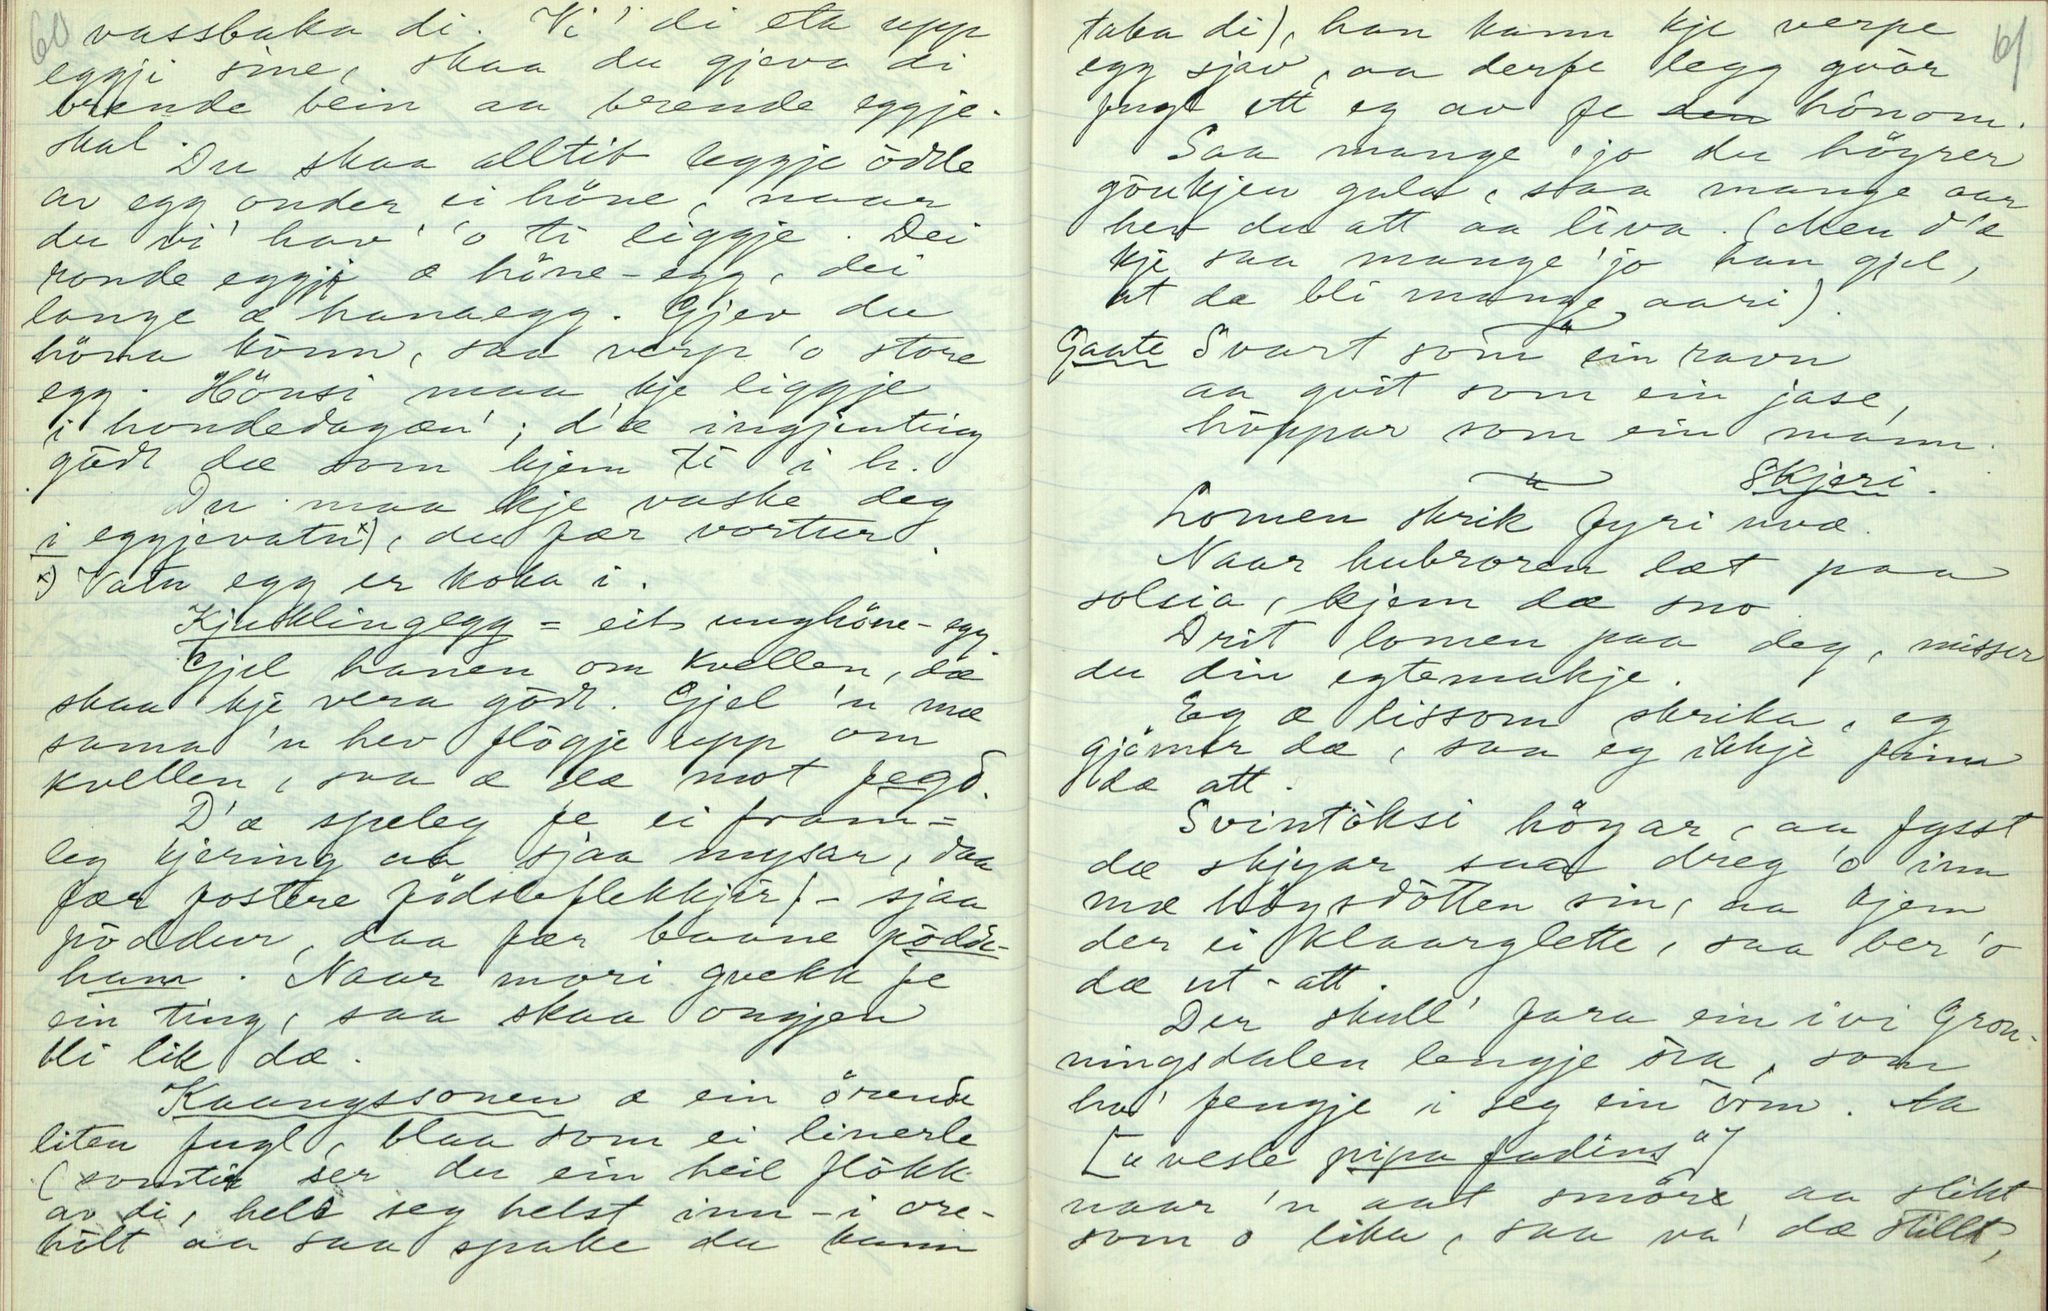 60
vassbaka di. Vi' di eta upp
eggji sine, skaa du gjeva di
brende bein aa brende eggje-
skal.
Du skaa alltit leggje ödde
av egg onder ei höne, naar
du vi' hav' 'o ti liggje. Dei
ronde eggji æ höne-egg, dei
lange æ hanaegg. Gjev du
höna könn, saa verp 'o store
egg. Hönsi maa kje liggje
i hondedagæn'; d'æ ingjenting
gödt dæ som kjem ti i h.
Du maa kje vaske deg
i eggjevatn x), du fær vortur.
x) Vatn egg er koka i.
Kjuklingegg = eit unghöne-egg
Gjel hanen om kvellen, dæ
skaa kje vera gödt. Gjel 'n mæ
sama 'n hev flögje upp om
kvellen, saa æ dæ mot fegd.
D'æ speleg fe ei fram-
leg kjering aa sjaa mysar, daa
fær fostere födsleflekkjir, - sjaa
pöddur, daa fær baane pödde-
ham. Naar mori gvekk fe
ein ting, saa skaa ongjen
bli lik dæ.
Kaangssonen æ ein örende
liten fugl, blaa som ei linerle
(somtit ser du ein heil flökk
av di, held seg helst inn-i ore-
hölt aa saa spake du kann
61
taka di), han kann kje verpe
egg sjav, aa derfe legg gvör
fugl ett eg av fe hönom.
Saa mange 'jo du höyrer
gönkjen gala, saa mange aar
hev du att aa liva. (Men d'æ
kje saa mange 'jo han gjel,
at dæ bli mange aari).
Gaate Svart som ein ravn
aa gvit som ein jase,
höppar som ein mann.
Skjeri.
Lomen skrik fyri uvæ.
Naar hubroren læt paa
solsia, kjem dæ sno
Drit lomen paa deg, misser
du din egtemakje.
Eg æ lissom skrika, eg
gjömer dæ, saa eg ikkje finn
dæ att.
Svintöksi höyar, aa fysst
dæ skjyar saa dreg 'o inn
mæ höysdötten sin, aa kjem
der ei klaarglette, saa ber 'o
dæ ut-att.
Der skull' fara ein ivi Gron-
ningsdalen lengje sia, som
ha' fengje i seg ein orm. Aa
["a vesle pipa fadins"]
naar 'n aat smöre aa slikt
som o lika, saa va' dæ stillt,